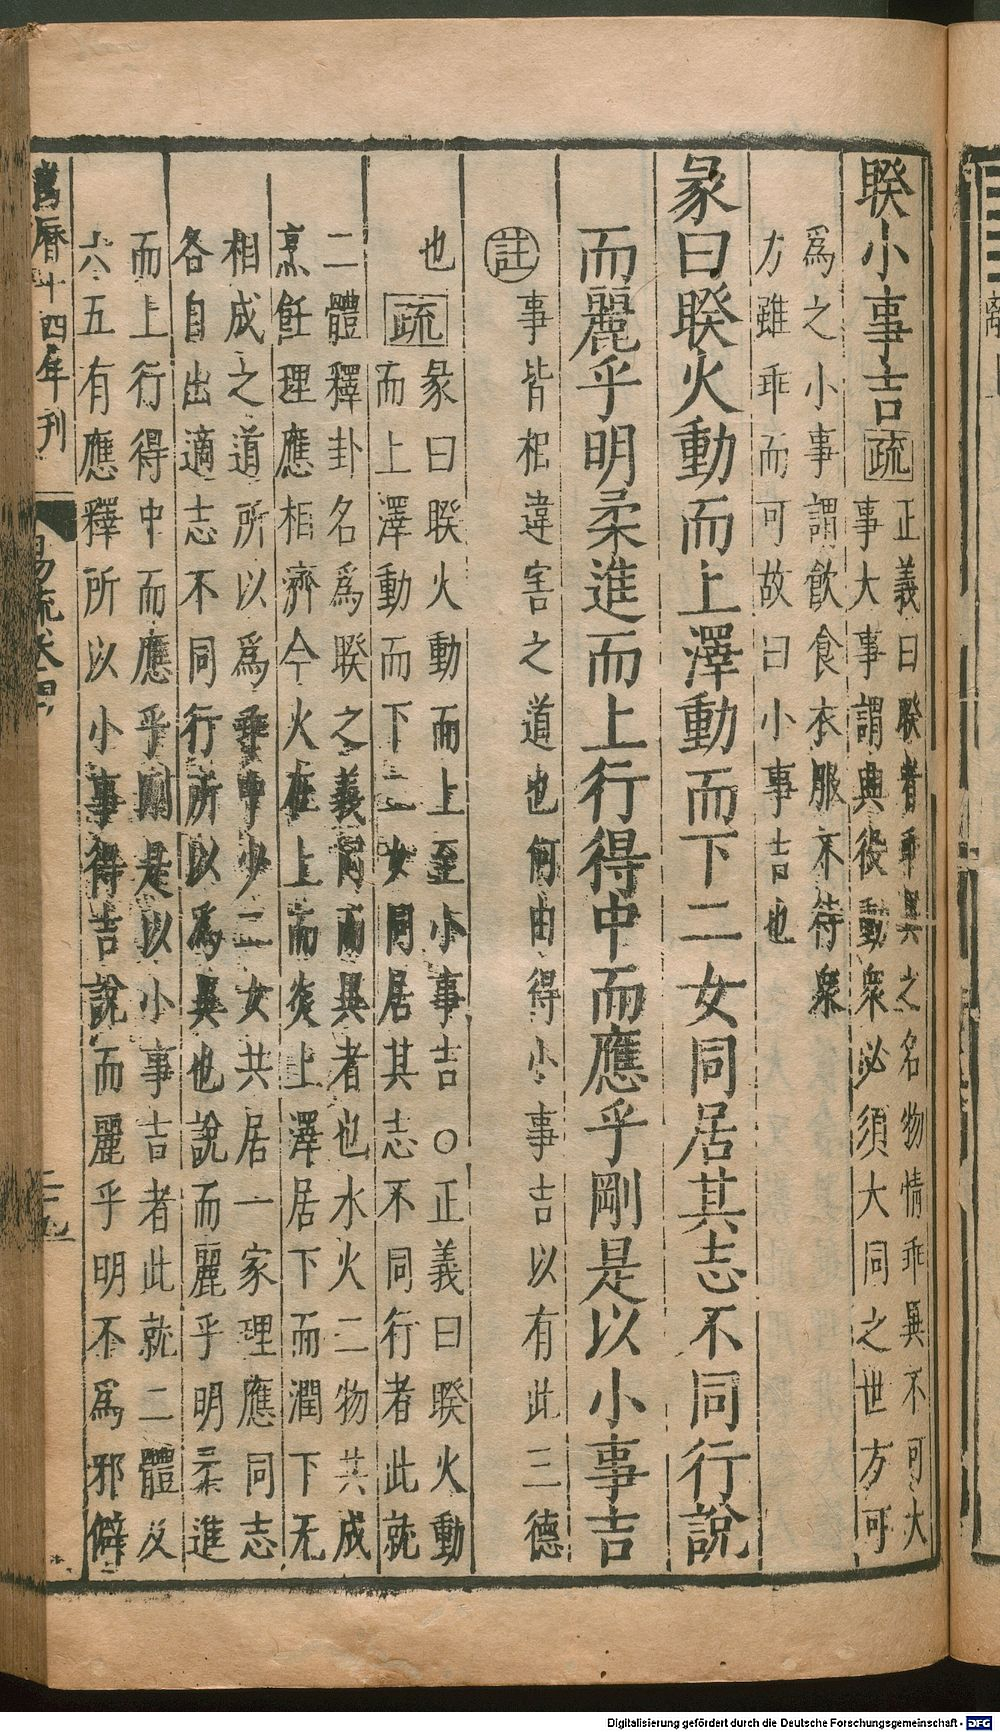 睽小事吉疏
正義曰睽者乖異之名物情乖異不可大
事大事謂興役動衆必須大同之世方可
爲之小事謂飲食衣服不待衆
力雖乖而可故曰小事吉也
彖曰睽火動而上澤動而下二女同居其志不同行說
而麗乎明柔進而上行得中而應乎剛是以小事吉
註
事皆相違害之道也何由得小事吉以有此三德
也
疏
彖曰睽火動而上至小事吉○正義曰睽火動
而上澤動而下二女同居其志不同行者此就
二體釋卦名爲睽之義同而異者也水火二物共成
烹飪理應相濟今火在上而炎上澤居下而潤下无
相成之道所以爲乖中少二女共居一家理應同志
各自出適志不同行所以爲異也說而麗乎明柔進
而上行得中而應乎剛是以小事吉者此就二體及
六五有應釋所以小事得吉說而麗乎明不爲邪僻
萬曆十四年刊
易疏卷四
二十九
Digitalisierung gefördert durch die Deutsche Forschungsgemeinschaft - DFG